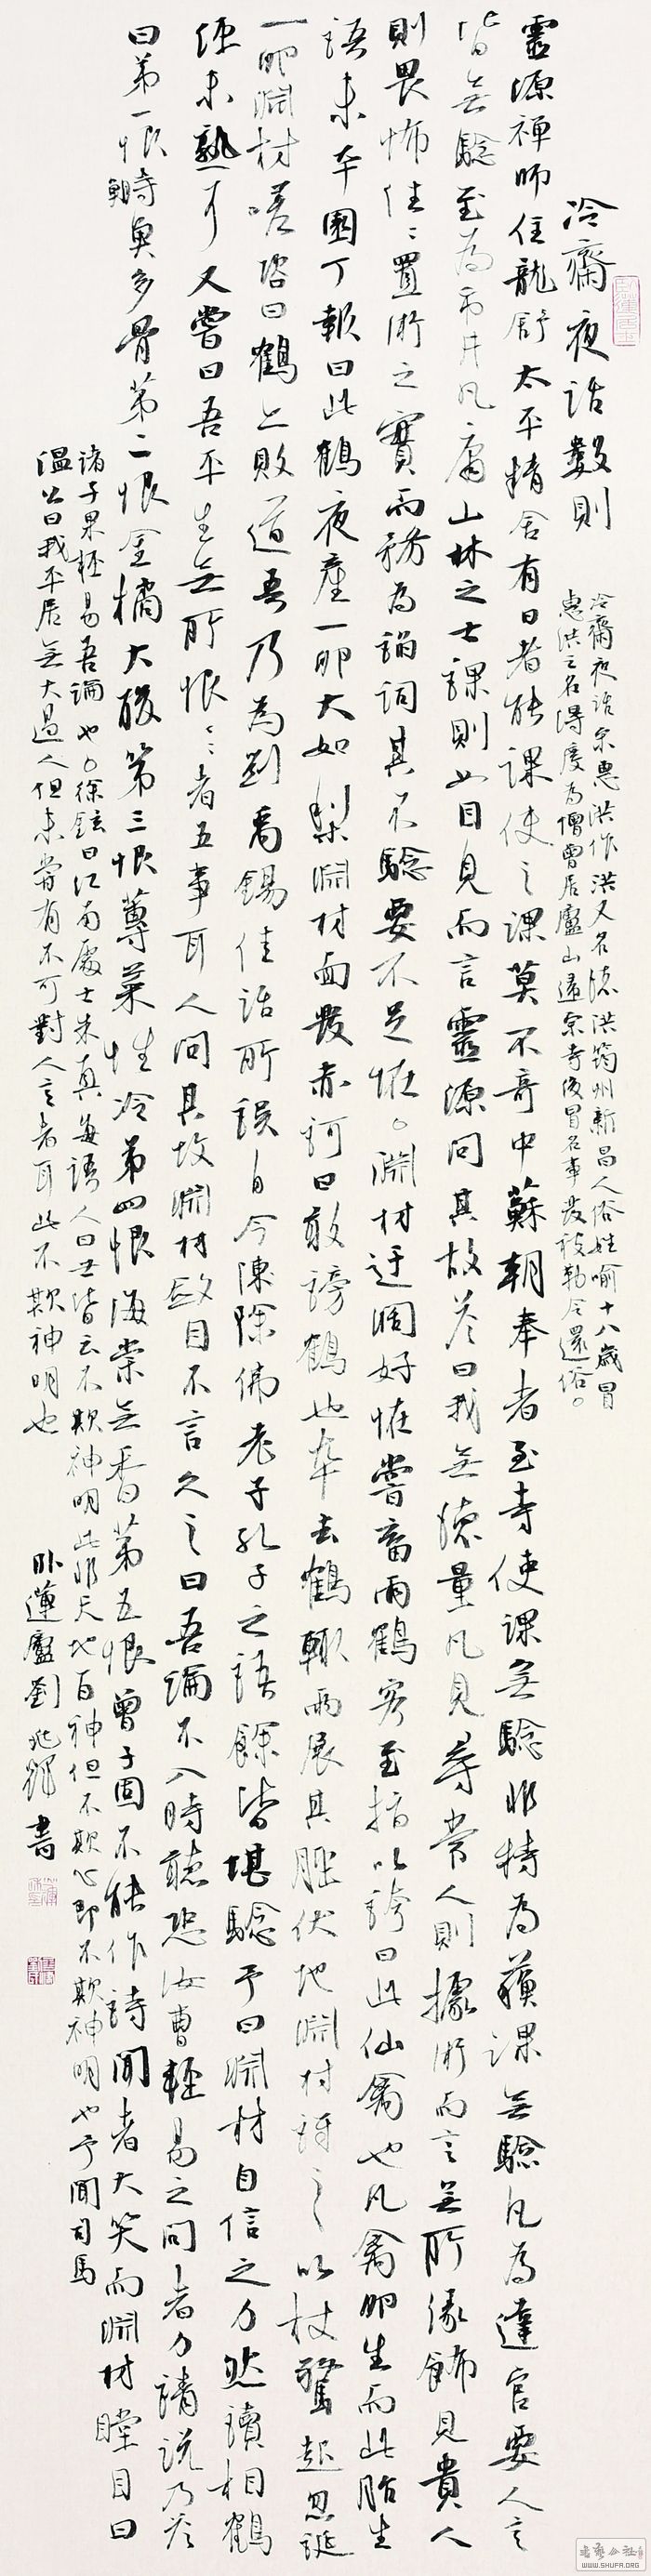 冷齋夜話數則
冷齋夜話宋惠洪作洪又名德洪筠州新昌人俗姓喻十八歲冒
惠洪之名得度為僧曾居廬山遠宗寺後冒名事發被勒令還俗。
靈源禪師住龍舒太平精舍有日者能課使之課莫不奇中蘇朝奉者至寺使課無驗非特為蘇課無驗凡為達官要人言
皆無驗至為市井凡庸山林之士課則如目見而言靈源問其故答曰我無德量凡見尋常人則據術而言無所緣飾見貴人
則畏怖往往置術之實而務為諂詞其不驗要不足怪。淵材迂闊好怪嘗畜兩鶴客至指以誇曰此仙禽也凡禽卵生而此胎生
語未卒園丁報曰此鶴夜產一卵大如梨淵材面發赤訶曰敢謗鶴也卒去鶴輒兩展其脛伏地淵材訝之以杖驚起忽誕
一卵淵材嗟咨曰鶴亦敗道吾乃為劉禹錫佳話所誤自今除佛老子孔子之語餘皆堪驗予曰淵材自信之力然讀相鶴
經未熟耳又嘗曰吾平生無所恨恨者五事耳人問其故淵材斂目不言久之曰吾論不入時聽恐汝曹輕易之問者力請說乃答
曰第一恨鰣魚多骨第二恨金橘太酸第三恨蓴菜性冷第四恨海棠無香第五恨曾子固不能作詩聞者大笑而淵材瞠目曰
諸子果輕易吾論也。徐鉉曰江南處士朱真每語人曰世皆云不欺神明此非天地百神但不欺心即不欺神明也予聞司馬
溫公曰我平居無大過人但未嘗有不可對人言者耳此不欺神明也
卧蓮廬劉兆彬書
老藝公社
WWW.SHUFA.ORG